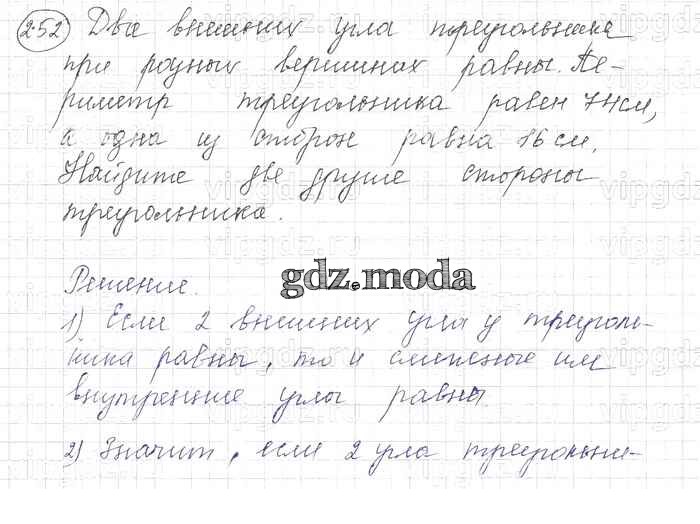 252 Два внешних угла треугольника
при разных вершинах равны. Пе-
риметр треугольника равен 74 см,
а одна из сторон равна 16 см.
Найдите две другие стороны
треугольника.
gdz.moda
Решение.
1) Если 2 внешних угла у треуголь-
ника равны, то и смежные им
внутренние углы равны
2) Значит, если 2 угла треугольни-